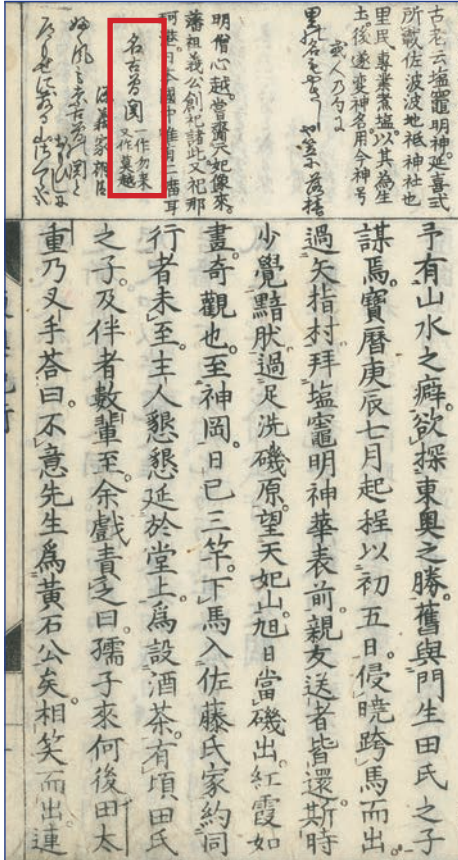 古老云塩竈明神延喜式
所載佐波波地祇神社也
里民專業煮塩以其為生
土後遂變神名用今神号
或人のうたに
明僧心越嘗齎天妃像來。
藩祖義公創祀諸此又祀那
珂港日本國中唯有二廟耳
名古曽関
一作勿来
又作莫越
源義家朝臣
吹風を奈古曽の関と
おもへとも
予有山水之癖。欲探東奥之勝。舊與門生田氏之子
謀焉。寶曆庚辰七月起程以初五日。侵曉跨馬而出。
過矢指村。拜塩竈明神華表前。親友送者皆還。斯時
少覺黯肰。過足洗磯原。望天妃山。旭日當磯出。紅霞如
畫。奇觀也。至神岡。日已三竿。下馬入佐藤氏家約同
行者未至。主人懇懇延於堂上。爲設酒茶。有頃田氏
之子。及伴者數輩至。余戲責之曰。孺子來何後田太
重乃叉手荅曰。不意先生爲黄石公矣。相笑而出。連